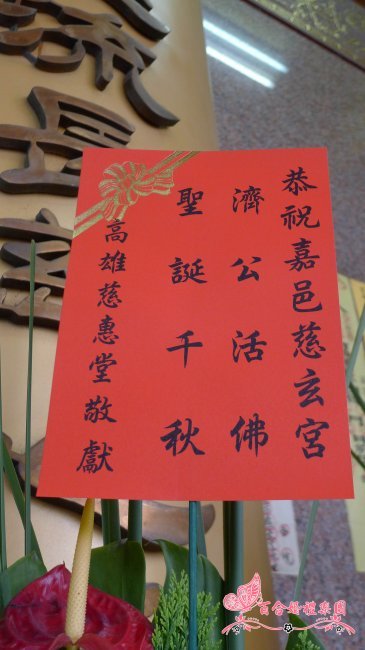 恭祝嘉邑慈玄宮
濟公活佛
聖誕千秋
高雄慈惠堂敬獻
百合婚禮集團